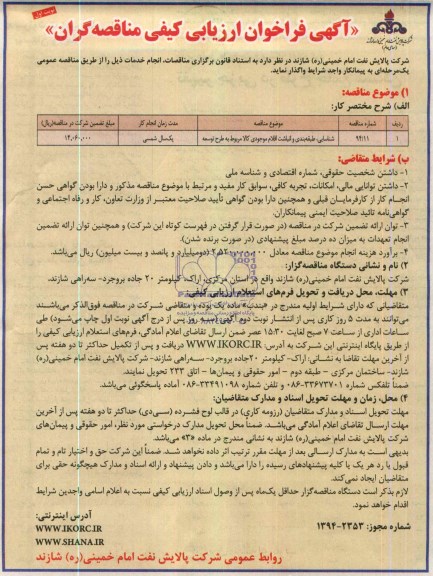 «آگهی فراخوان ارزیابی کیفی مناقصه‌گران»
شرکت پالایش نفت امام خمینی(ره) شازند در نظر دارد به استناد قانون برگزاری مناقصات، انجام خدمات ذیل را از طریق مناقصه عمومی
یک‌مرحله‌ای به پیمانکار واجد شرایط واگذار نماید.
۱) موضوع مناقصه:
الف) شرح مختصر کار:
ردیف شماره مناقصه موضوع مناقصه مدت زمان انجام کار مبلغ تضمین شرکت در مناقصه(ریال)
۱ ۹۴/۱۱ شناسایی، طبقه‌بندی و انباشت اقلام موجودی کالا مربوط به طرح توسعه یک‌سال شمسی
ب) شرایط متقاضی:
۱- داشتن شخصیت حقوقی، شماره اقتصادی و شناسه ملی
۲- داشتن توانایی مالی، امکانات، تجربه کافی، سوابق کار مفید و مرتبط با موضوع مناقصه مذکور و دارا بودن گواهی حسن
انجام کار از کارفرمایان قبلی و همچنین دارا بودن گواهی تأیید صلاحیت معتبر از وزارت تعاون، کار و رفاه اجتماعی و
گواهی‌نامه تائید صلاحیت ایمنی پیمانکاران.
۳- توان ارائه تضمین شرکت در مناقصه (در صورت قرار گرفتن در فهرست کوتاه این شرکت) و همچنین توان ارائه تضمین
انجام تعهدات به میزان ده درصد مبلغ پیشنهادی (در صورت برنده شدن).
۴- برآورد هزینه انجام موضوع مناقصه معادل (دومیلیارد و پانصد و بیست میلیون) ریال می‌باشد.
۲) نام و نشانی دستگاه مناقصه‌گزار:
شرکت پالایش نفت امام خمینی(ره) شازند واقع در استان مرکزی، اراک، کیلومتر ۲۰ جاده بروجرد- سه‌راهی شازند.
۳) مهلت، محل دریافت و تحویل فرم‌های استعلام ارزیابی کیفی:
متقاضیانی که دارای شرایط اولیه مندرج در «بند ب» ماده یک بوده و متقاضی شرکت در مناقصه فوق‌الذکر می‌باشند
می‌توانند به مدت ۵ روز کاری پس از انتشار نوبت دوم آگهی از درج آگهی نوبت اول چاپ می‌شود) طی
ساعات اداری از ساعت ۷ صبح لغایت ۱۵:۳۰ عصر ضمن ارسال تقاضای اعلام آمادگی، فرم‌های استعلام ارزیابی کیفی را
از طریق پایگاه اینترنتی این شرکت به آدرس: WWW.IKORC.IR دریافت و پس از تکمیل حداکثر تا دو هفته پس
از آخرین مهلت تقاضا به نشانی: اراک- کیلومتر ۲۰جاده بروجرد- سه‌راهی شازند- شرکت پالایش نفت امام خمینی(ره)
شازند- ساختمان مرکزی - طبقه دوم - امور حقوقی و پیمان‌ها - اتاق ۲۳۳ تحویل نمایند.
ضمناً تلفکس شماره ۳۳۶۷۳۷۰۱-۰۸۶ و تلفن شماره ۳۳۴۹۱۰۹۸-۰۸۶ آماده پاسخگوئی می‌باشد.
۴) محل، زمان و مهلت تحویل اسناد و مدارک متقاضیان:
مهلت تحویل اسناد و مدارک متقاضیان (رزومه کاری) در قالب لوح فشرده (سی‌دی) حداکثر تا دو هفته پس از آخرین
مهلت ارسال تقاضای اعلام آمادگی می‌باشد. ضمناً محل تحویل مدارک درخواستی مورد نظر، امور حقوقی و پیمان‌های
شرکت پالایش نفت امام خمینی(ره) شازند به نشانی مندرج در ماده «۳» می‌باشد.
بدیهی است به مدارک ارسالی بعد از مهلت مقرر ترتیب اثر داده نخواهد شد. ضمناً این شرکت حق و اختیار تام و تمام
قبول یا رد هر یک یا کلیه پیشنهادهای رسیده را دارا می‌باشد و دادن پیشنهاد و ارائه اسناد و مدارک هیچگونه حقی برای
متقاضیان ایجاد نمی‌کند.
لازم بذکر است دستگاه مناقصه‌گزار حداقل یک‌ماه پس از وصول اسناد ارزیابی کیفی نسبت به اعلام اسامی واجدین شرایط
اقدام خواهد نمود.
آدرس اینترنتی:
WWW.IKORC.IR
شماره مجوز: ۲۳۵۳-۱۳۹۴
WWW.SHANA.IR
روابط عمومی شرکت پالایش نفت امام خمینی(ره) شازند